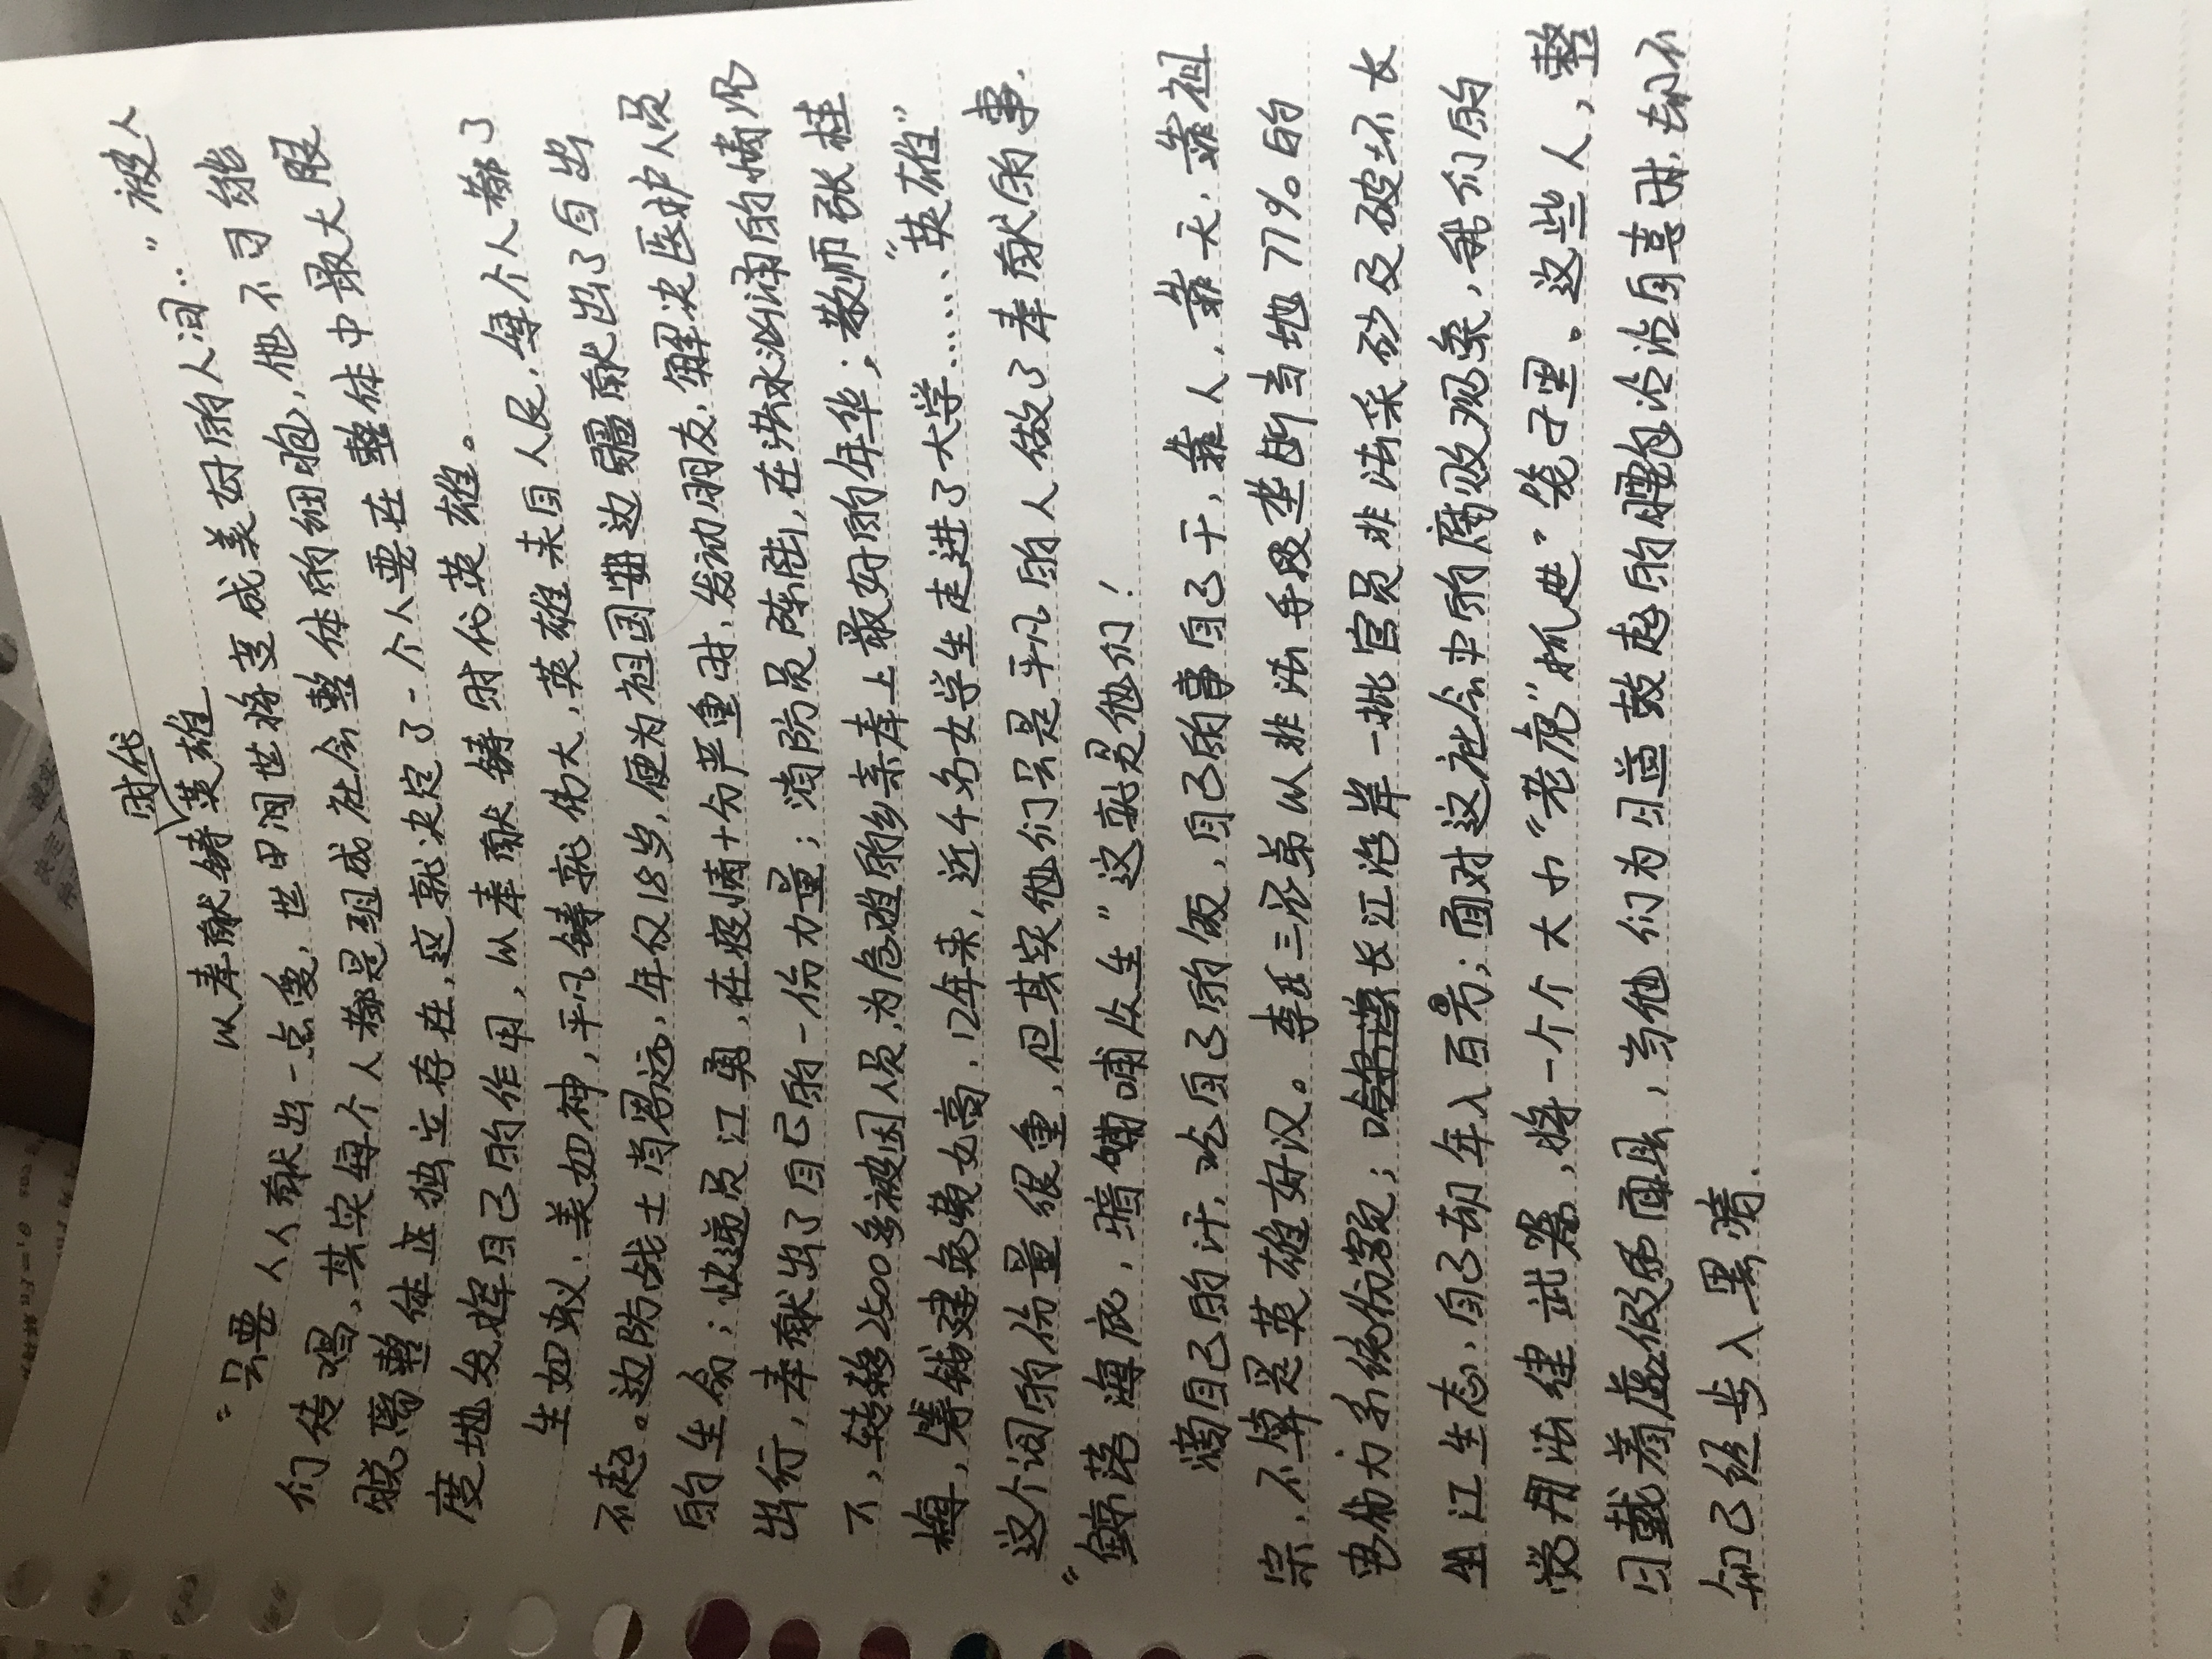 以奉献铸时代英雄
“只要人人献出一点爱，世界间世将变成美好的人间..”被人
们传唱，其实每个人都是组成社会整体的细胞，他不可能
脱离整体立独立存在，这就决定了一个人要在整体中最大限
度地发挥自己的作用，从奉献铸时代英雄。
生如蚁，美如神，平凡铸就伟大，英雄来自人民，每个人都了
不起。边防战士肖思远，年仅18岁，便为祖国边疆献出了自出
的生命；快递员江勇，在疫情十分严重时，发动朋友，解决医护人员
出行，奉献出了自己的一份力量；消防员陈陆，在洪水汹涌的情况
下，转移2500多被困人员，为危难的乡亲奉上最好的年华；教师张桂
梅，筹钱建免费女高，12年来，近千名女学生走进了大学……、“英雄”
这个词的份量很重，但其实他们只是平凡的人做了奉献的事.
“鲸落海底，暗哺众生”这就是他们！
滴自己的汗，吃自己的饭，自己的事自己干，靠人，靠天，靠祖
宗，不算是英雄好汉。李氏三兄弟以非法手段垄断当地77%的
电力系统份额；长江沿岸一批官员非法采砂及破坏长
江生态，自己却年入百号；面对这社会中的腐败现象，我们的
党用法律武器，将一个个大小“老虎”抓进”笼子里。这些人，整
日戴着虚假的面具，当他们为日益鼓起的腰包沾沾自喜时，却不
知已经步入黑暗.